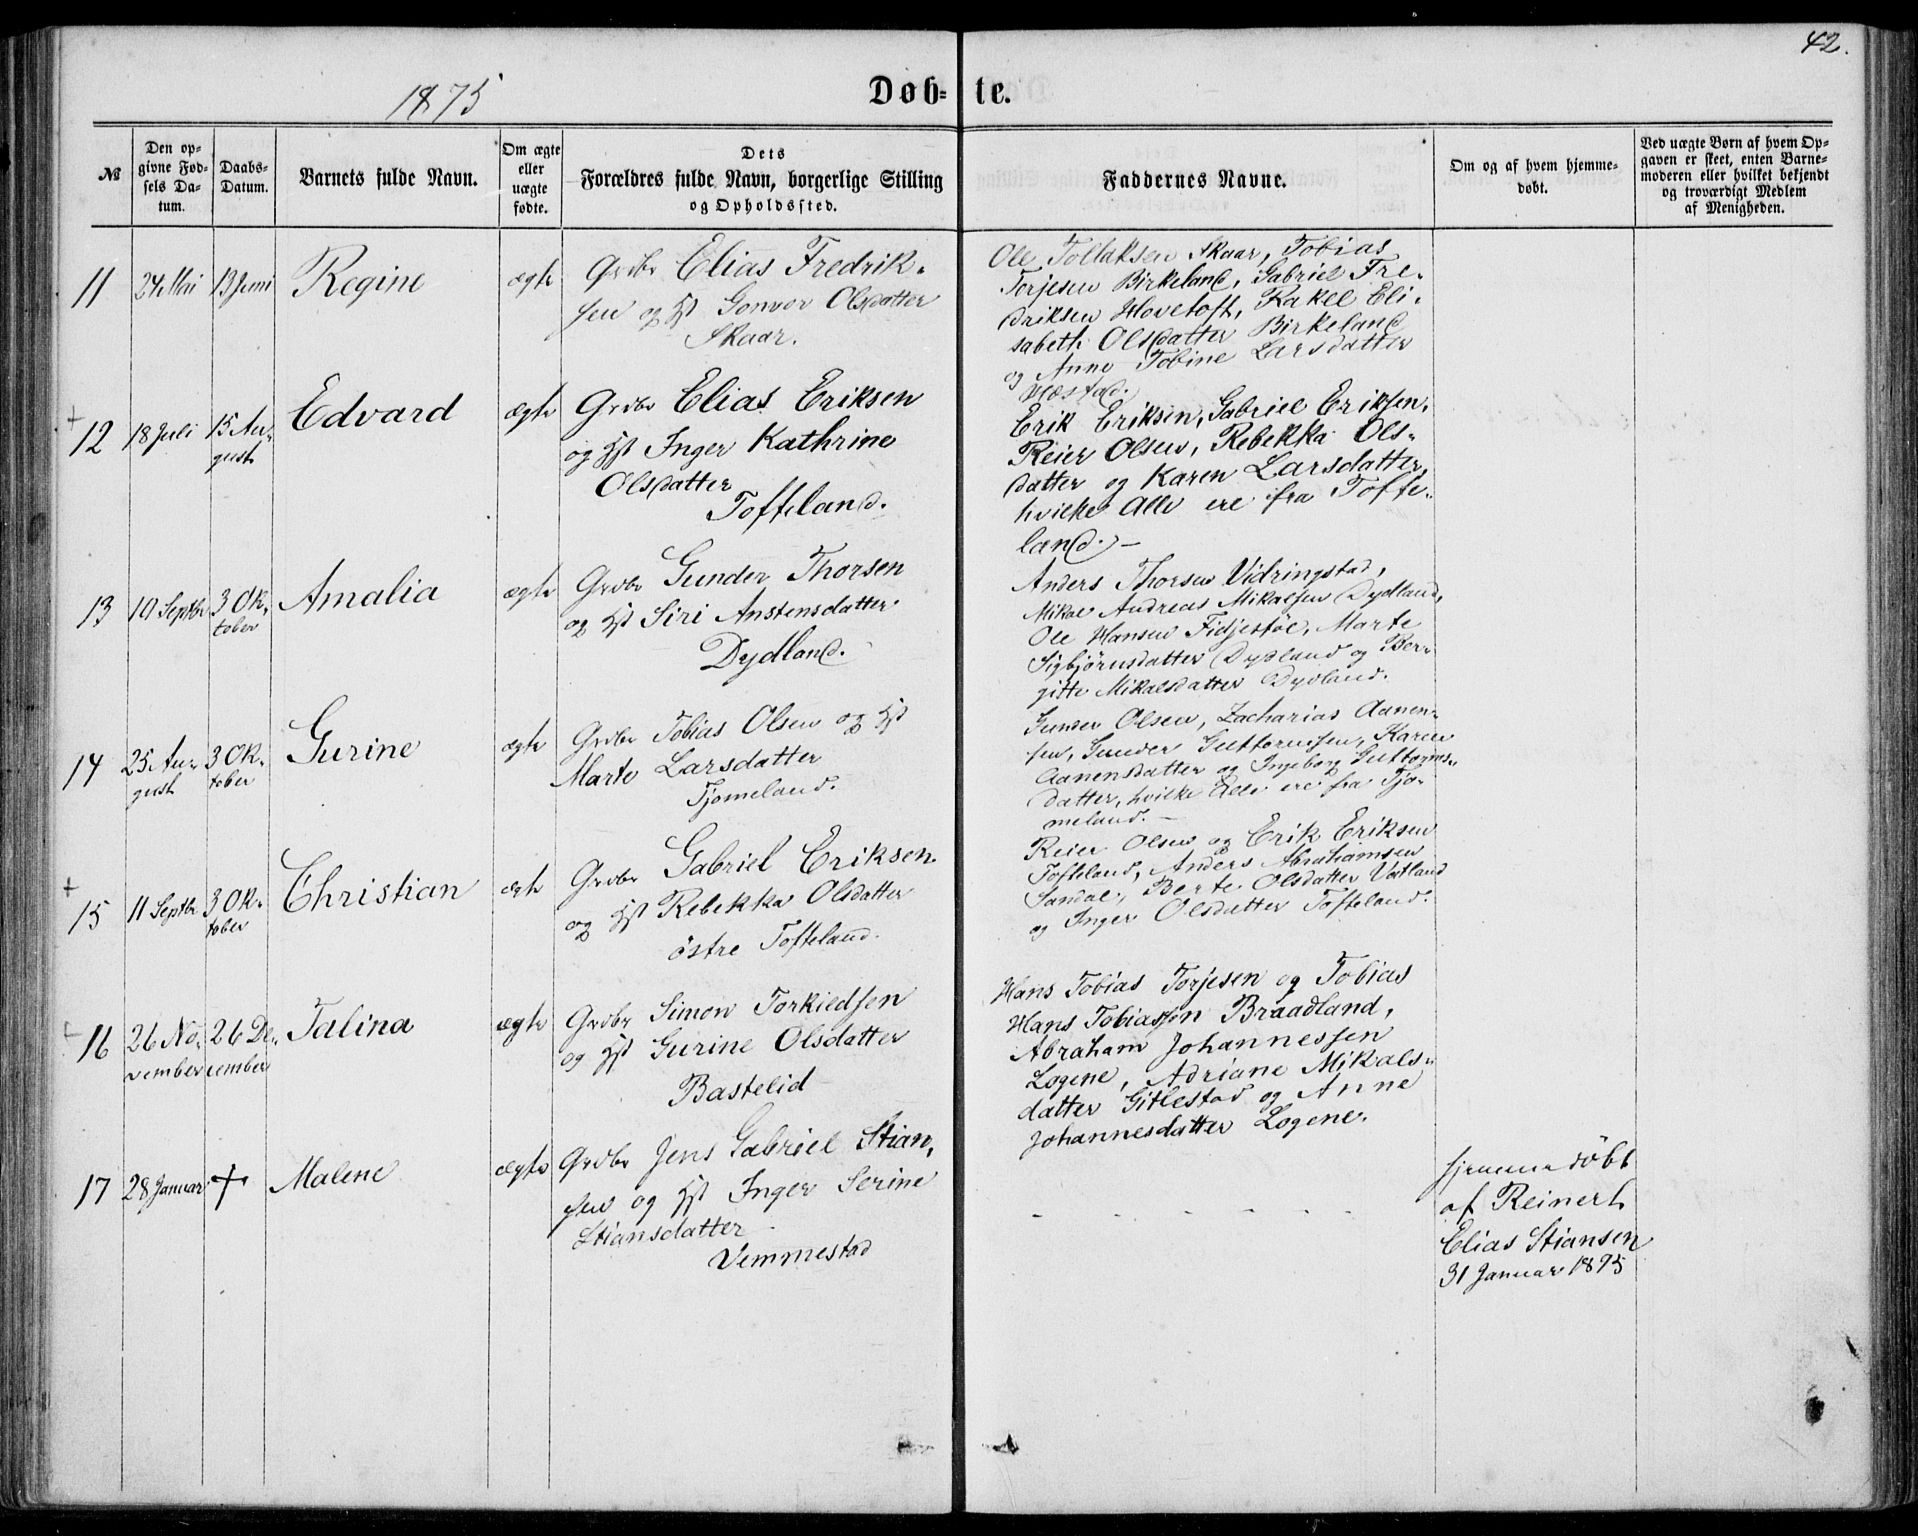 42.
1875
Døb= te.
№
Den op-
givne Fød-
sels Da-
tum.
Daabs-
Datum.
Barnets fulde Navn.
Om ægte
eller
uægte
fødte.
Dets
Forældres fulde Navn, borgerlige Stilling
og Opholdssted.
Faddernes Navne.
Om og af hvem hjemme-
døbt.
Ved uægte Børn af hvem Op-
gaven er skeet, enten Barne-
moderen eller hvilket bekjendt
og troværdigt Medlem
af Menigheden.
11
24 Mai
13 Juni
Regine
ægte
Grdbr Elias Fredrik-
sen og Hst Gonvor Olsdatter
Skaar.
Ole Tollaksen Skaar, Tobias
Torjesen Birkeland, Gabriel Fre-
driksen Hovetoft, Rakel Eli-
sabeth Olsdatter Birkeland
og Anne Tobine Larsdatter
+ 12
18 Juli
15 Au-
gust
Edvard
ægte
Grdbr Elias Eriksen
og Hst Inger Kathrine
Olsdatter
Tofteland.
Erik Eriksen, Gabriel Eriksen,
Reier Olsen, Rebekka Ols-
datter og Karen Larsdatter,
hvilke Alle ere fra Tofte-
land. -
13
10 Septbr
3 Ok-
tober
Amalia
ægte
Grdbr Gunder Thorsen
og Hst Siri Anstensdatter
Dydland.
Anders Thorsen Vidringstad,
Mikal Andreas Mikalsen Dydland,
Ole Hansen Fidjestøl, Marte
Sigbjørnsdatter Dydland og Ber-
gitte Mikalsdatter Dydland.
14
25 Au-
gust
3 Ok-
tober
Gurine
ægte
Grdbr Tobias Olsen og Hst
Marte Larsdatter
Tjomeland.
Gunder Olsen, Zacharias Aanen-
sen, Gunder Guttormsen, Karen
Aanensdatter og Ingeborg Guttorms-
datter, hvilke Alle ere fra Tjo-
meland. -
+ 15
11 Septbr
3 Ok-
tober
Christian
ægte
Grdbr Gabriel Eriksen
og Hst Rebekka Olsdatter
østre Tofteland.
Reier Olsen og Erik Eriksen
Tofteland, Anders Abrahamsen
Sandal, Berte Olsdatter Vatland
og Inger Olsdatter Tofteland.
+ 16
26 No-
vember
26 De-
cember
Talina
ægte
Grdbr Simon Torkildsen
og Hst Gurine Olsdatter
Bastelid
Hans Tobias Torjesen og Tobias
Hans Tobiassen Braadland,
Abraham Johannessen
Logene, Adriane Mikals-
datter Gitlestad og Anne
Johannesdatter Logene.
17
28 Januar
+
Malene
ægte
Grdbr Jens Gabriel Stian-
sen og Hst Inger Serine
Stiansdatter
Vemmestad
- - - - - - -
hjemmedøbt
af Reinert
Elias Stiansen
31 Januar 1875